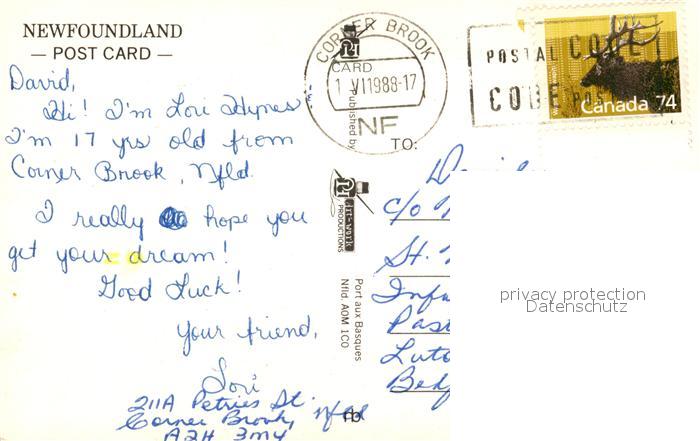 NEWFOUNDLAND
— POST CARD —
David,
Hi! I'm Lori Hynes
I'm 17 yrs old from
Corner Brook, Nfld.
I really hope you
get your dream!
Good Luck!
Your friend,
Lori
211A Petries St.
Corner Brook, Nfld
A2H 3M4
CORNER BROOK
1 VI 1988-17
NF
CARD
Published by
PRODUCTIONS
Port aux Basques
Nfld. A0M 1C0
POSTAL CODE
CODE POSTAL
Canada 74
TO:
c/o
St.
privacy protection
Datenschutz